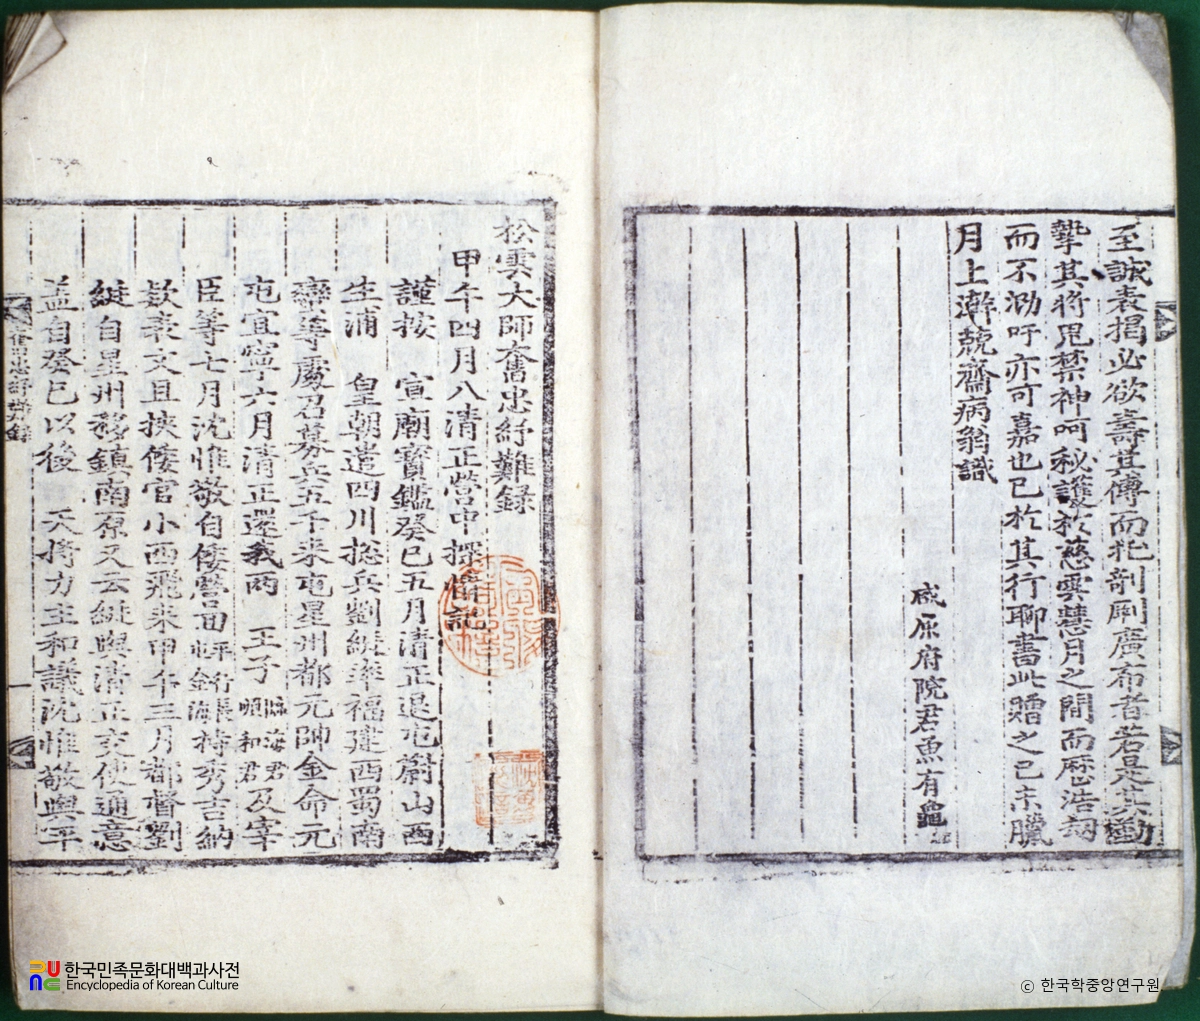 至誠表揭必欲壽其傳而圯剞劂廣布者若是其勤
摯其將鬼禁神呵秘護於慈雲慧月之間而歷浩劫
而不泐吁亦可嘉也已於其行聊書此贈之己未臘
月上澣兢齋病翁識
咸原府院君魚有龜
松雲大師奮忠紓難錄
甲午四月八清正營中探情記
謹按 宣廟寶鑑癸巳五月淸正退屯蔚山西
生浦 皇朝遣四川摠兵劉綎率福建西蜀南
蠻等處召募兵五千來屯星州都元帥金命元
屯宜寧六月清正還我兩 王子臨海君順和君及宰
臣等七月沈惟敬自倭營回 持秀吉納
欵表文且挾倭官小西飛來甲午三月都督劉
綎自星州移鎮南原又云綎與淸正交使通意
盖自癸巳以後 天將方主和議沈惟敬與平
奮忠紓難錄
一
한국민족문화대백과사전
Encyclopedia of Korean Culture
ⓒ 한국학중앙연구원